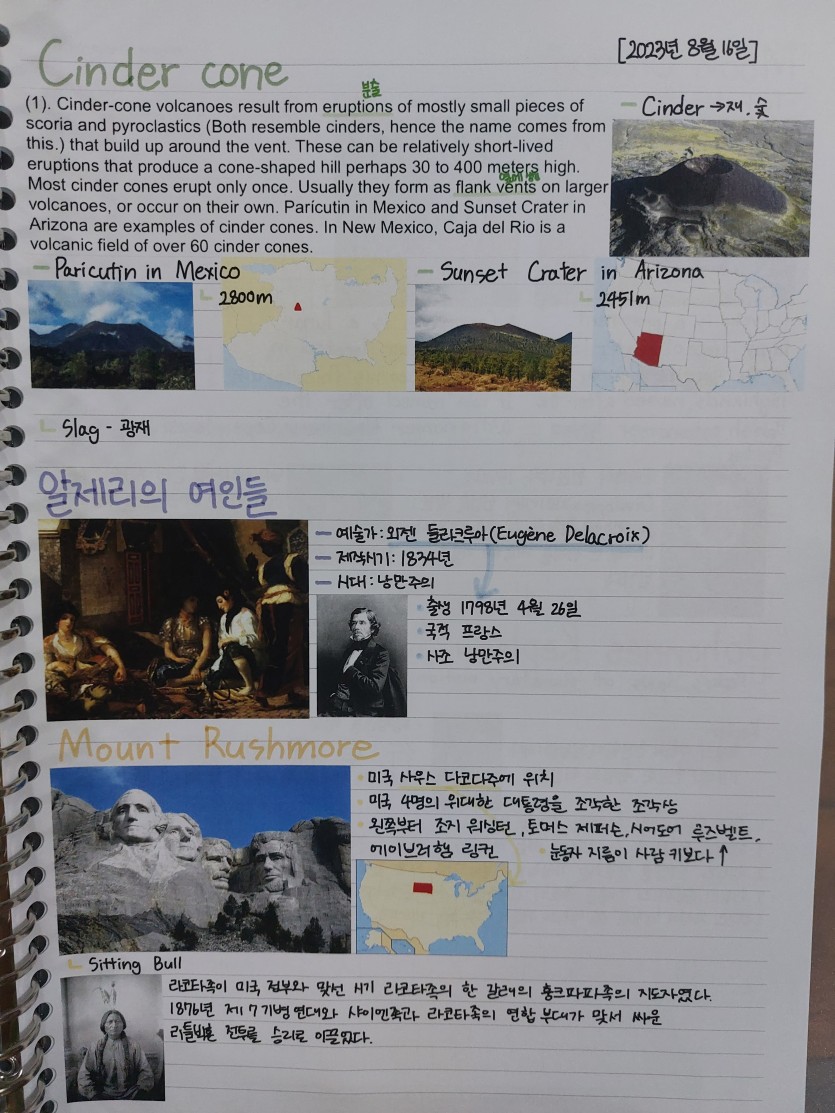 [2023년 8월 16일]
Cinder cone
분출
(1). Cinder-cone volcanoes result from eruptions of mostly small pieces of
scoria and pyroclastics (Both resemble cinders, hence the name comes from
this.) that build up around the vent. These can be relatively short-lived
eruptions that produce a cone-shaped hill perhaps 30 to 400 meters high.
Most cinder cones erupt only once. Usually they form as flank vents on larger
volcanoes, or occur on their own. Parícutin in Mexico and Sunset Crater in
Arizona are examples of cinder cones. In New Mexico, Caja del Rio is a
volcanic field of over 60 cinder cones.
- Cinder → 재. 숯
- Paricutin in Mexico
2800m
- Sunset Crater in Arizona
2451m
Slag - 광재
알제리의 여인들
- 예술가: 외젠 들라크루아(Eugène Delacroix)
- 제작시기: 1834년
- 시대: 낭만주의
• 출생 1798년 4월 26일
• 국적 프랑스
• 사조 낭만주의
Mount Rushmore
• 미국 사우스 다코다주에 위치
• 미국 4명의 위대한 대통령을 조각한 조각상
• 왼쪽부터 조지 워싱턴, 토머스 제퍼슨, 시어도어 루즈벨트,
에이브러햄 링컨
• 눈동자 지름이 사람 키보다 ↑
Sitting Bull
라코타족이 미국 정부와 맞선 시기 라코타족의 한 갈래의 훙크파파족의 지도자였다.
1876년 제 7기병 연대와 샤이엔족과 라코타족의 연합 부대가 맞서 싸운
리틀빅혼 전투를 승리로 이끌었다.